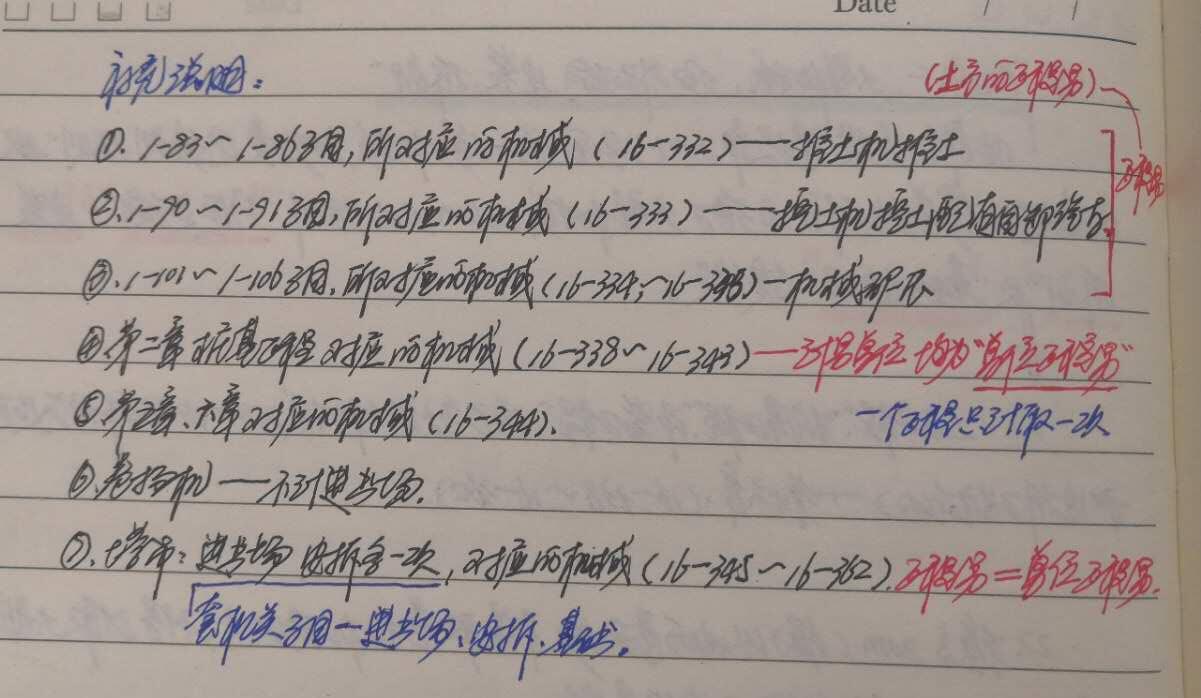 Date / /
补充说明:
(土方的工程量)
①、1-83~1-86子目,所对应的机械(16-332)——推土机推土
工程量
②、1-90~1-91子目,所对应的机械(16-333)——挖土机挖土配自卸
③、1-101~1-106子目,所对应的机械(16-334、~16-
④、第二章桩基工程对应的机械(16-338~16-343)—工程量单位均为“单位工程量”
⑤、第五章、六章对应的机械(16-344).
一个工程只计取一次
⑥、卷扬机——不计进出场.
⑦、塔吊:进出场 安拆各一次,对应的机械(16-345~16-362).工程量=单位工程量.
套相关子目—进出场、安拆、基础。